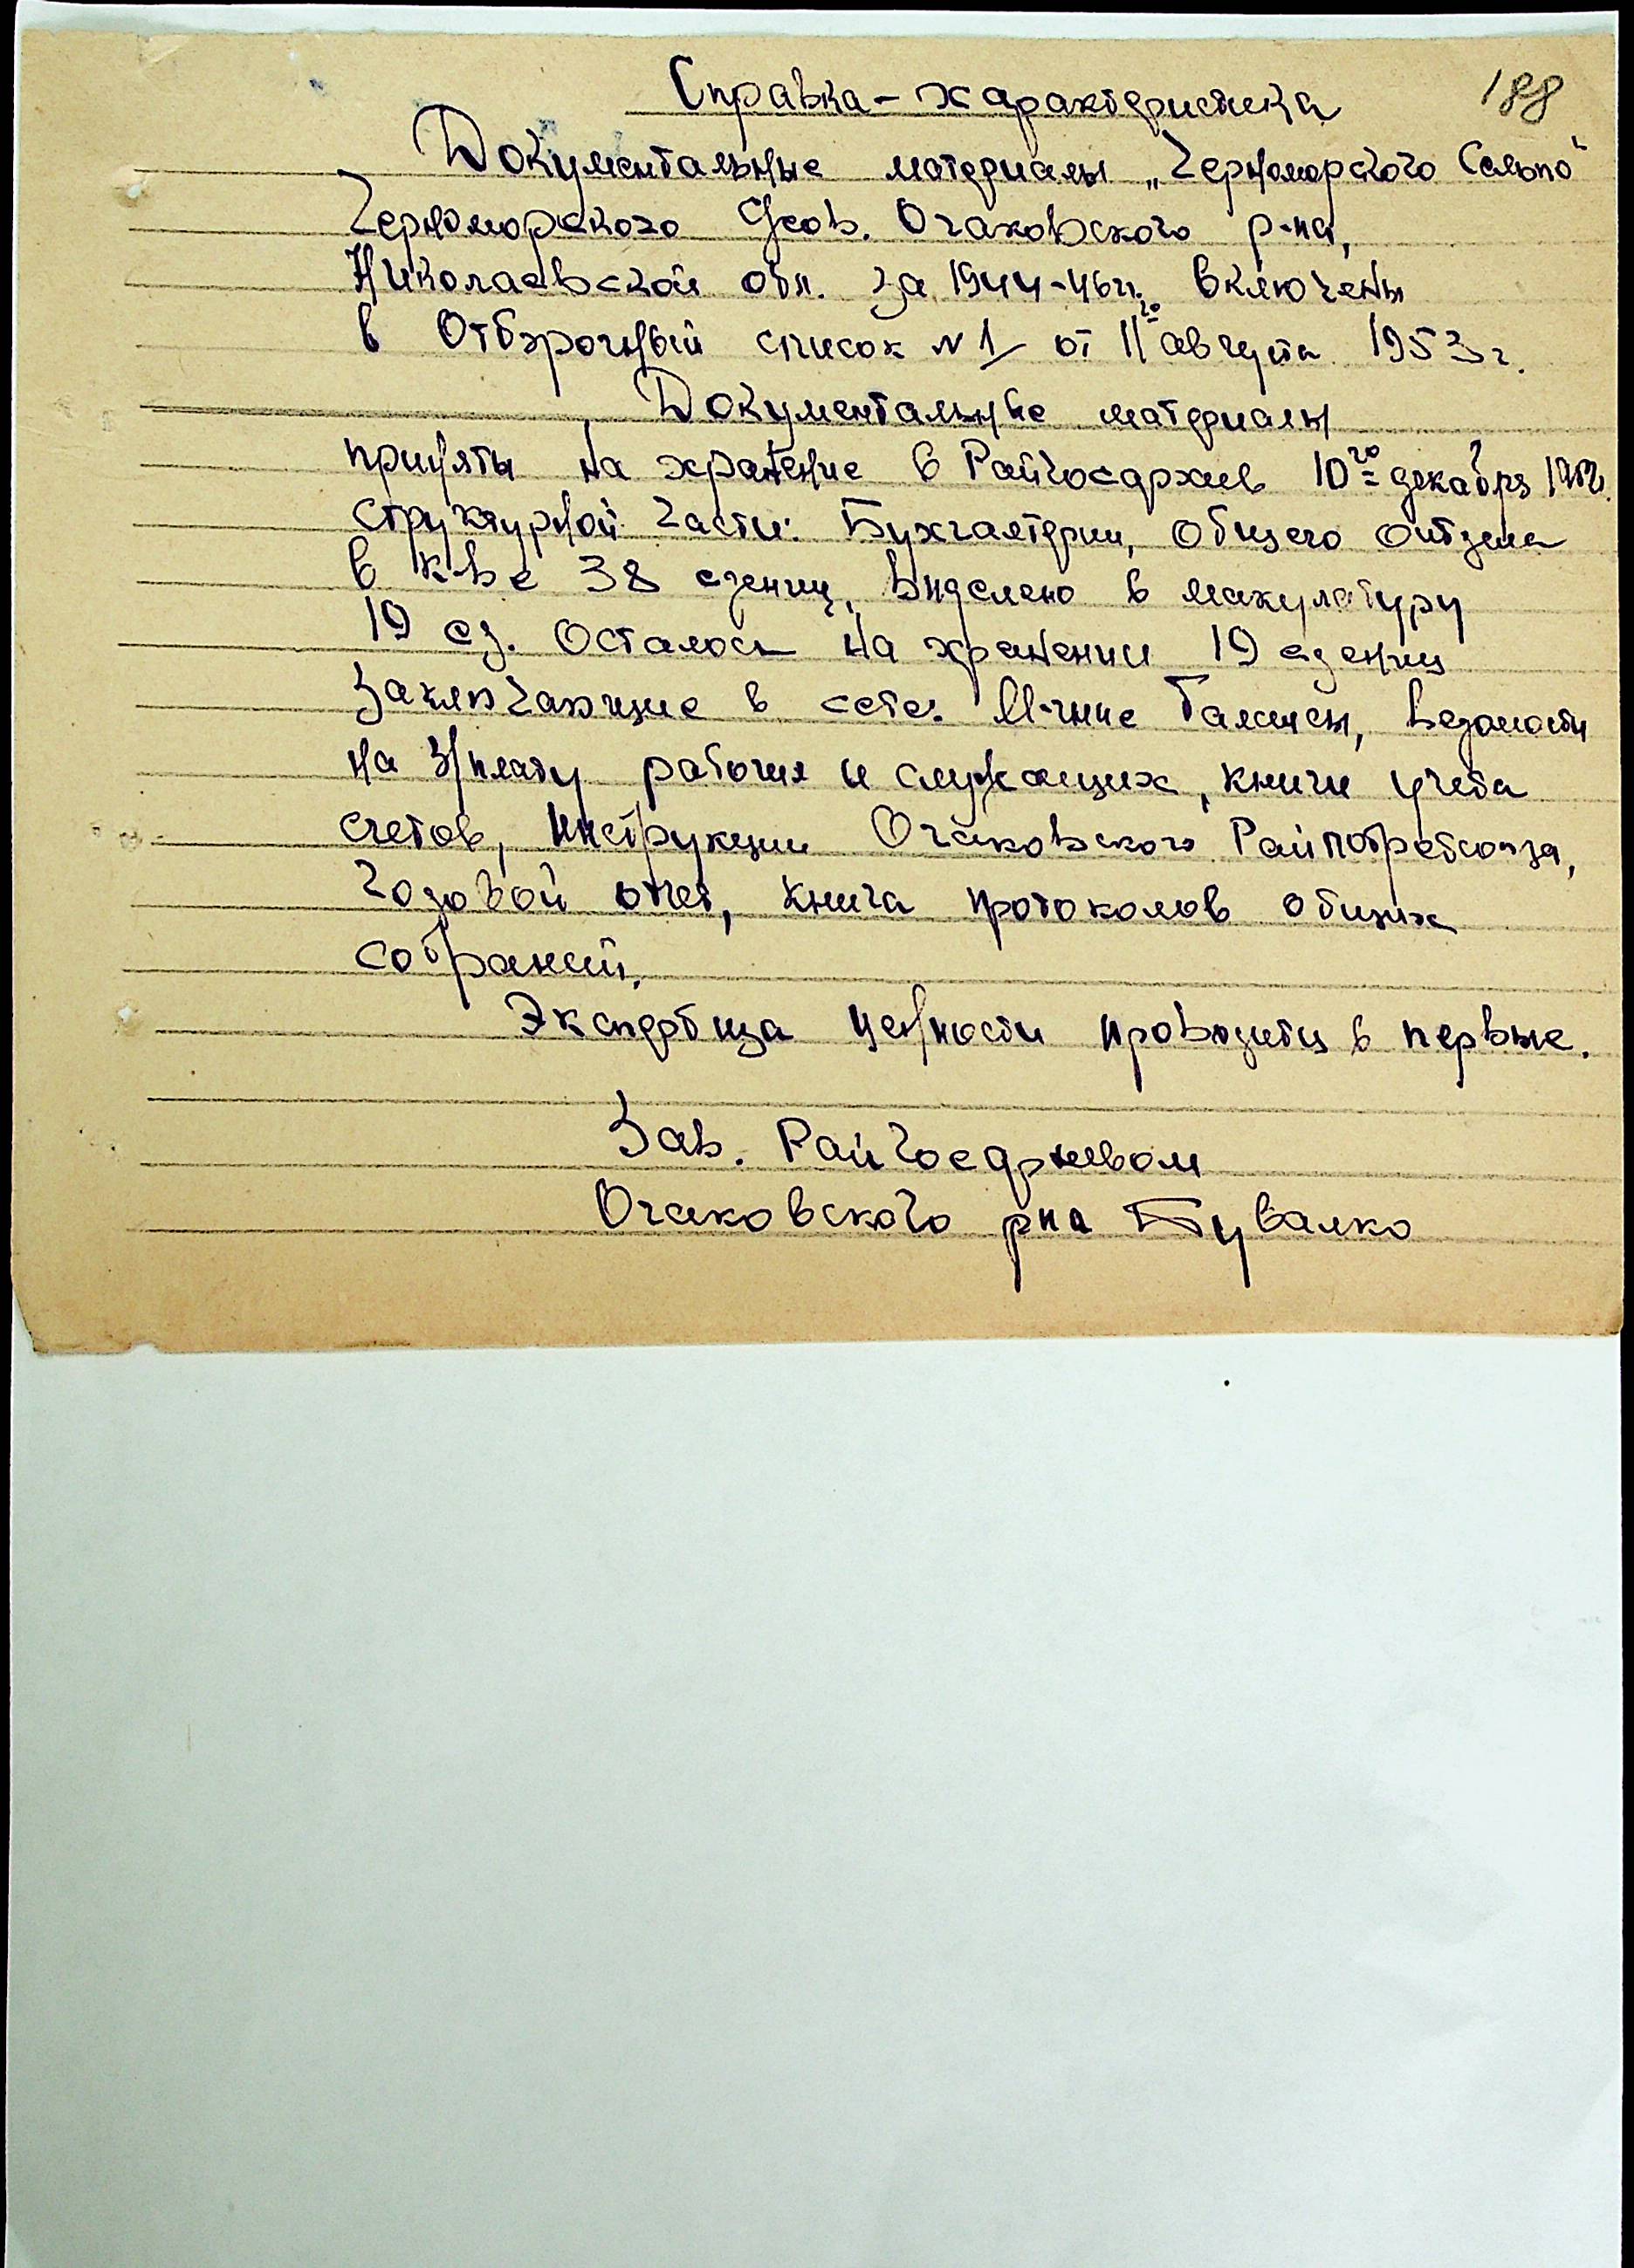 188
Справка-характеристика
Документальные материалы „Черноморского Сельпо"
Черноморского С/сов. Очаковского р-на,
Николаевской обл. за 1944-46 гг. включены
в Отборочный список N 1 от 11го августа 1953 г.
Документальные материалы
приняты на хранение в Райгосархив 10го декабря
структурной части: Бухгалтерии, общего отдела
в к-ве 38 едениц, выделено в макулатуру
19 ед. Осталось на хранении 19 едениц
заключающие в себе: М-чние балансы, ведомости
на з/плату рабочих и служащих, книги учета
счетов, инструкции Очаковского Райпотребсоюза,
годовой отчет, книга протоколов общих
собраний.
Экспертиза ценности проводится в первые.
Зав. Райгосархивом
Очаковского рна Бувалко